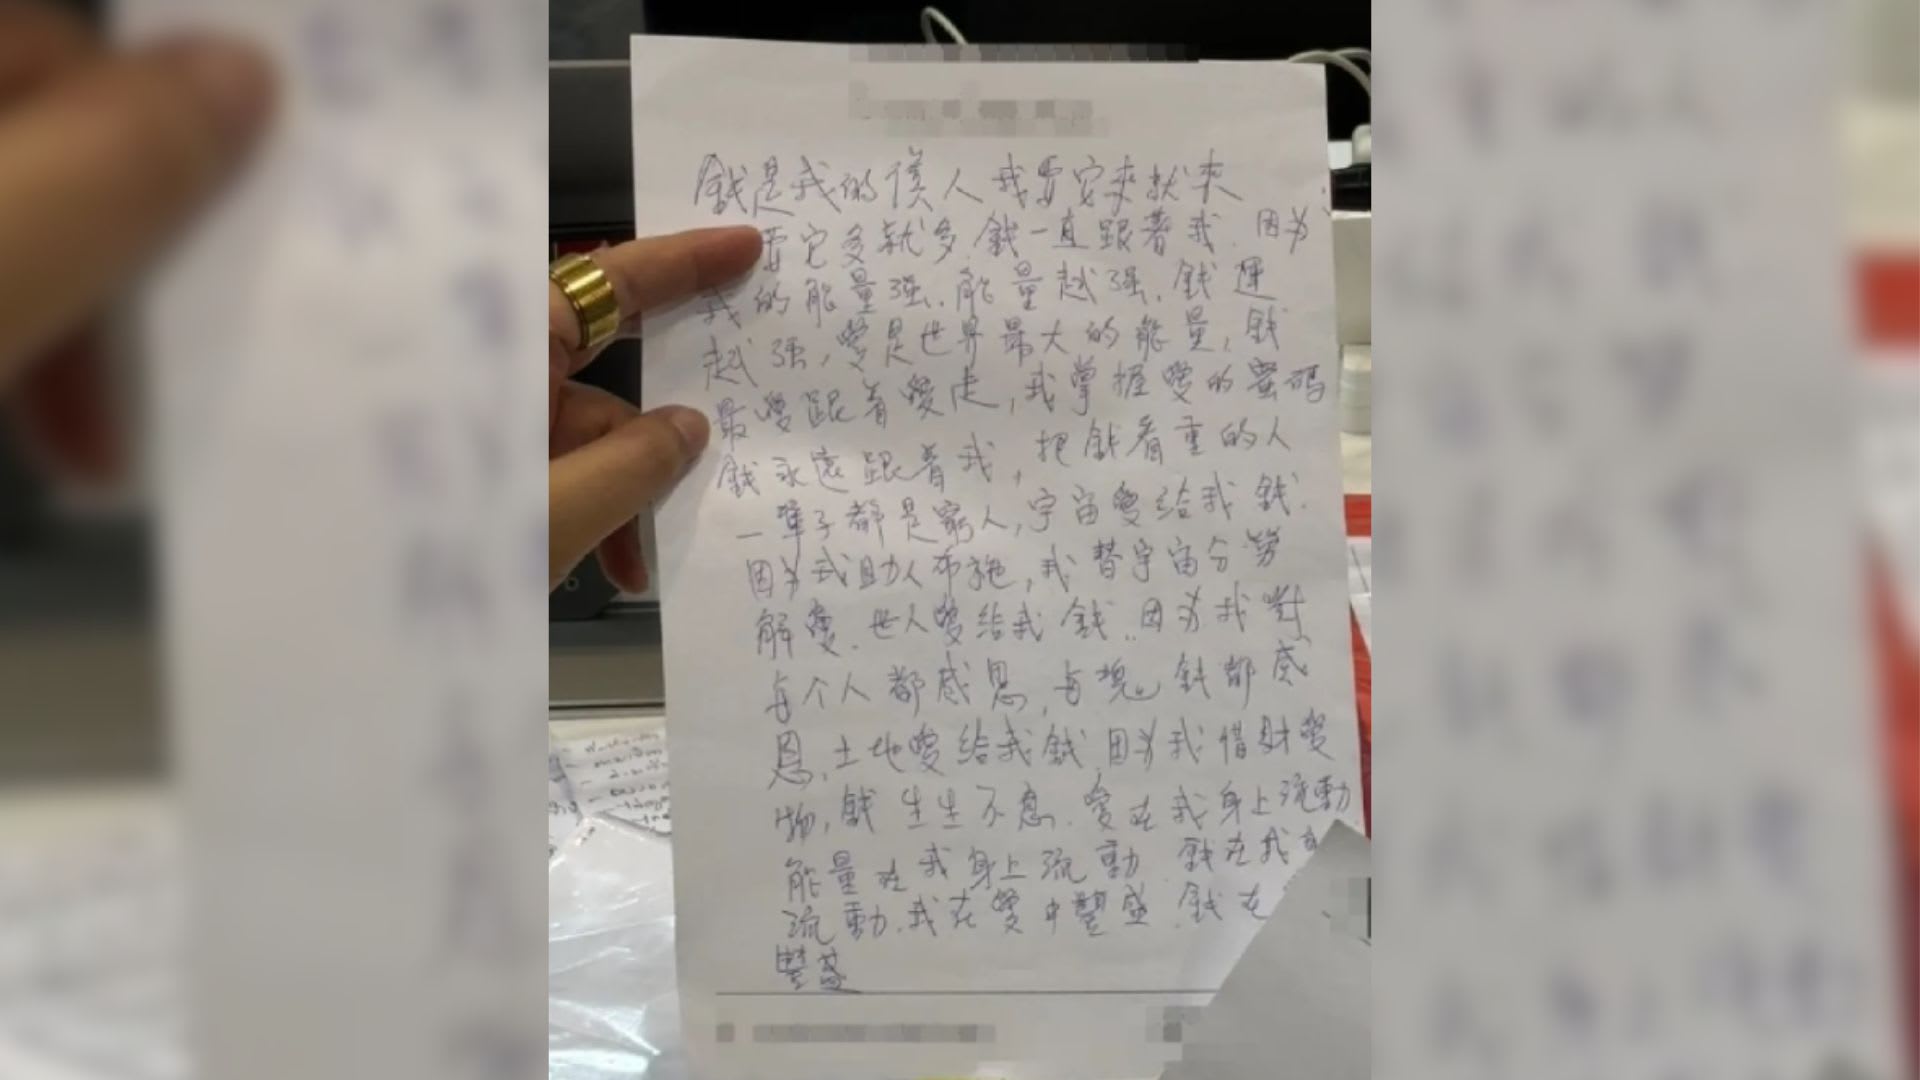 錢是我的僕人 我要它來就來
要它多就多.錢一直跟著我.因为
我的能量强.能量越强.錢運
越强,愛是世界最大的能量,錢
最愛跟着愛走,我掌握愛的密碼
錢永遠跟着我,把錢看重的人
一輩子都是窮人,宇宙愛给我錢.
因为我助人布施,我替宇宙分勞
解憂.世人愛给我錢..因为我對
每个人都感恩,每塊錢都感
恩.土地愛给我錢.因为我惜财愛
物,錢生生不息.愛在我身上流動
能量在我身上流動.錢在我
流動.我在愛中豐盛.錢在
豐盛